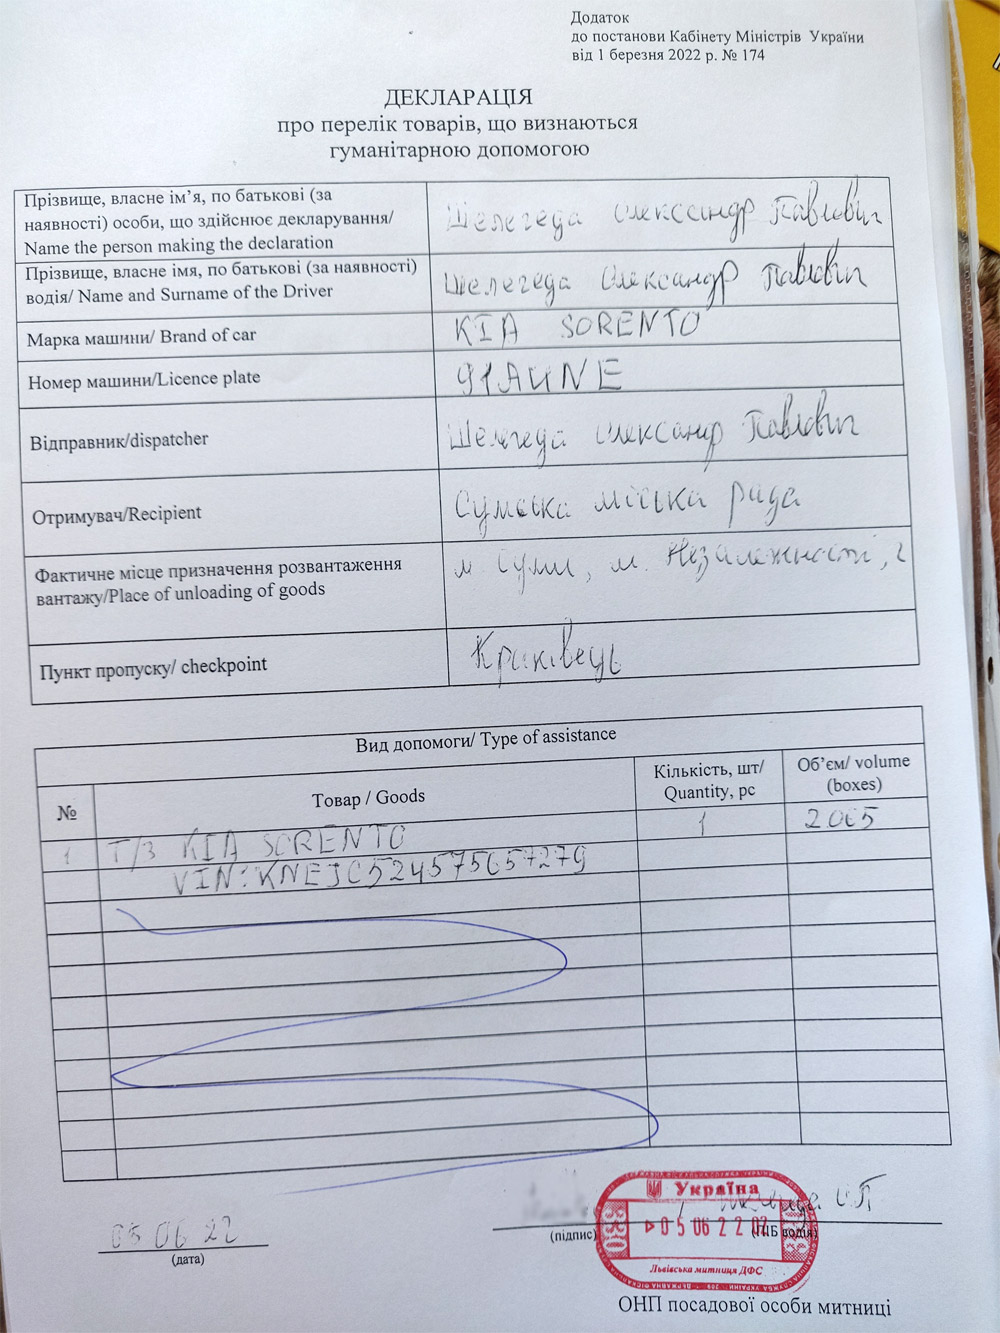 Додаток
до постанови Кабінету Міністрів України
від 1 березня 2022 р. № 174
ДЕКЛАРАЦІЯ
про перелік товарів, що визнаються
гуманітарною допомогою
Прізвище, власне ім’я, по батькові (за
наявності) особи, що здійснює декларування/
Name the person making the declaration
Шелегеда Олександр Павлович
Прізвище, власне імя, по батькові (за наявності)
водія/ Name and Surname of the Driver
Шелегеда Олександр Павлович
Марка машини/ Brand of car
KIA SORENTO
Номер машини/Licence plate
91AUNE
Відправник/dispatcher
Шелегеда Олександр Павлович
Отримувач/Recipient
Сумська міська рада
Фактичне місце призначення розвантаження
вантажу/Place of unloading of goods
м Суми, м. Незалежності, 2
Пункт пропуску/ checkpoint
Краківець
Вид допомоги/ Type of assistance
№
Товар / Goods
Кількість, шт/
Quantity, pc
Об’єм/ volume
(boxes)
1 Т/З KIA SORENTO 1 2005
VIN: KNEJC524575657279
05 06 22
(дата)
(підпис)
О П
(ПІБ водія)
Україна
05 06 22
Львівська митниця ДФС
ОНП посадової особи митниці